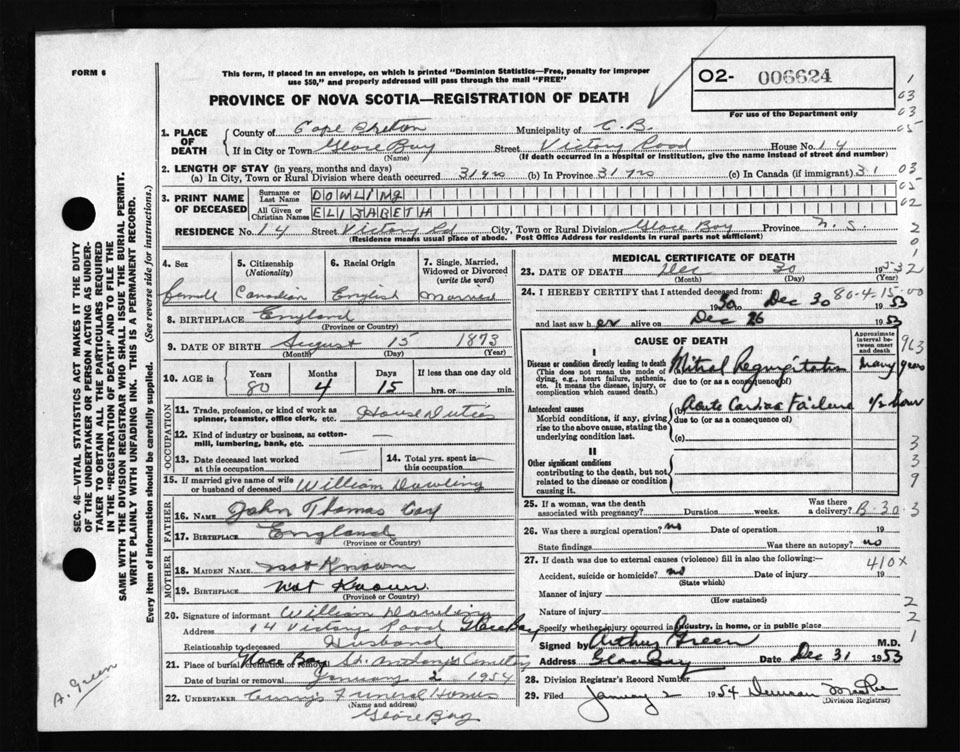 FORM 6
This form, if placed in an envelope, on which is printed "Dominion Statistics—Free, penalty for improper
use $50," and properly addressed will pass through the mail "FREE"
O2- 006624
For use of the Department only
PROVINCE OF NOVA SCOTIA—REGISTRATION OF DEATH
1. PLACE OF DEATH { County of Cape Breton Municipality of C.B.
If in City or Town Glace Bay Street Victory Road House No. 14
(Name) (If death occurred in a hospital or institution, give the name instead of street and number)
2. LENGTH OF STAY (in years, months and days)
(a) In City, Town or Rural Division where death occurred 31 yrs (b) In Province 31 yrs (c) In Canada (if immigrant) 31
3. PRINT NAME OF DECEASED { Surname or Last Name DOWLING
All Given or Christian Names ELIZABETH
RESIDENCE No. 14 Street Victory Rd City, Town or Rural Division Glace Bay Province N.S.
(Residence means usual place of abode. Post Office Address for residents in rural parts not sufficient)
4. Sex 5. Citizenship (Nationality) 6. Racial Origin 7. Single, Married, Widowed or Divorced (write the word)
female Canadian English Married
8. BIRTHPLACE England
(Province or Country)
9. DATE OF BIRTH August 15 1873
(Month) (Day) (Year)
10. AGE in { Years Months Days If less than one day old
80 4 15 hrs. or min.
OCCUPATION
11. Trade, profession, or kind of work as spinner, teamster, office clerk, etc. House Duties
12. Kind of industry or business, as cotton-mill, lumbering, bank, etc. —
13. Date deceased last worked at this occupation 14. Total yrs. spent in this occupation —
15. If married give name of wife or husband of deceased William Dowling
FATHER
16. NAME John Thomas Coy
17. BIRTHPLACE England
(Province or Country)
MOTHER
18. MAIDEN NAME not Known
19. BIRTHPLACE not Known
(Province or Country)
20. Signature of informant William Dowling
Address 14 Victory Road Glace Bay
Relationship to deceased Husband
21. Place of burial, cremation or removal Glace Bay St. Anthony's Cemetery
Date of burial or removal January 2 1954
22. UNDERTAKER Curry's Funeral Home
(Name and address)
Glace Bay
MEDICAL CERTIFICATE OF DEATH
23. DATE OF DEATH Dec 30 1953
(Month) (Day) (Year)
24. I HEREBY CERTIFY that I attended deceased from:
1950 to Dec 30 1953
80-4-15-00
and last saw her alive on Dec 26 1953
CAUSE OF DEATH
Approximate interval between onset and death
I
Disease or condition directly leading to death
(This does not mean the mode of dying, e.g., heart failure, asthenia, etc. It means the disease, injury, or complication which caused death.)
Mitral Regurgitation many years
due to (or as a consequence of)
Antecedent causes
Morbid conditions, if any, giving rise to the above cause, stating the underlying condition last.
(b) Acute Cardiac Failure 1/2 hour
due to (or as a consequence of)
(c)
II
Other significant conditions
contributing to the death, but not related to the disease or condition causing it.
25. If a woman, was the death associated with pregnancy? Duration weeks. Was there a delivery? B-30-3
26. Was there a surgical operation? no Date of operation 19
State findings Was there an autopsy? no
27. If death was due to external causes (violence) fill in also the following:
410X
Accident, suicide or homicide? no Date of injury 19
(State which)
Manner of injury
(How sustained)
Nature of injury
Specify whether injury occurred in industry, in home, or in public place
Signed by Arthur Green M.D.
Address Glace Bay Date Dec 31 1953
28. Division Registrar's Record Number
29. Filed January 2 1954 Duncan
(Division Registrar)
SEC. 46—VITAL STATISTICS ACT MAKES IT THE DUTY
OF THE UNDERTAKER OR PERSON ACTING AS UNDER-
TAKER TO OBTAIN ALL THE PARTICULARS REQUIRED
IN THE "REGISTRATION OF DEATH" AND TO FILE THE
SAME WITH THE DIVISION REGISTRAR WHO SHALL ISSUE THE BURIAL PERMIT.
WRITE PLAINLY WITH UNFADING INK. THIS IS A PERMANENT RECORD.
Every item of information should be carefully supplied. (See reverse side for instructions.)
A. Green
1
03
03
05
03
05
02
2
0
1
32
963
3
3
9
2
2
1